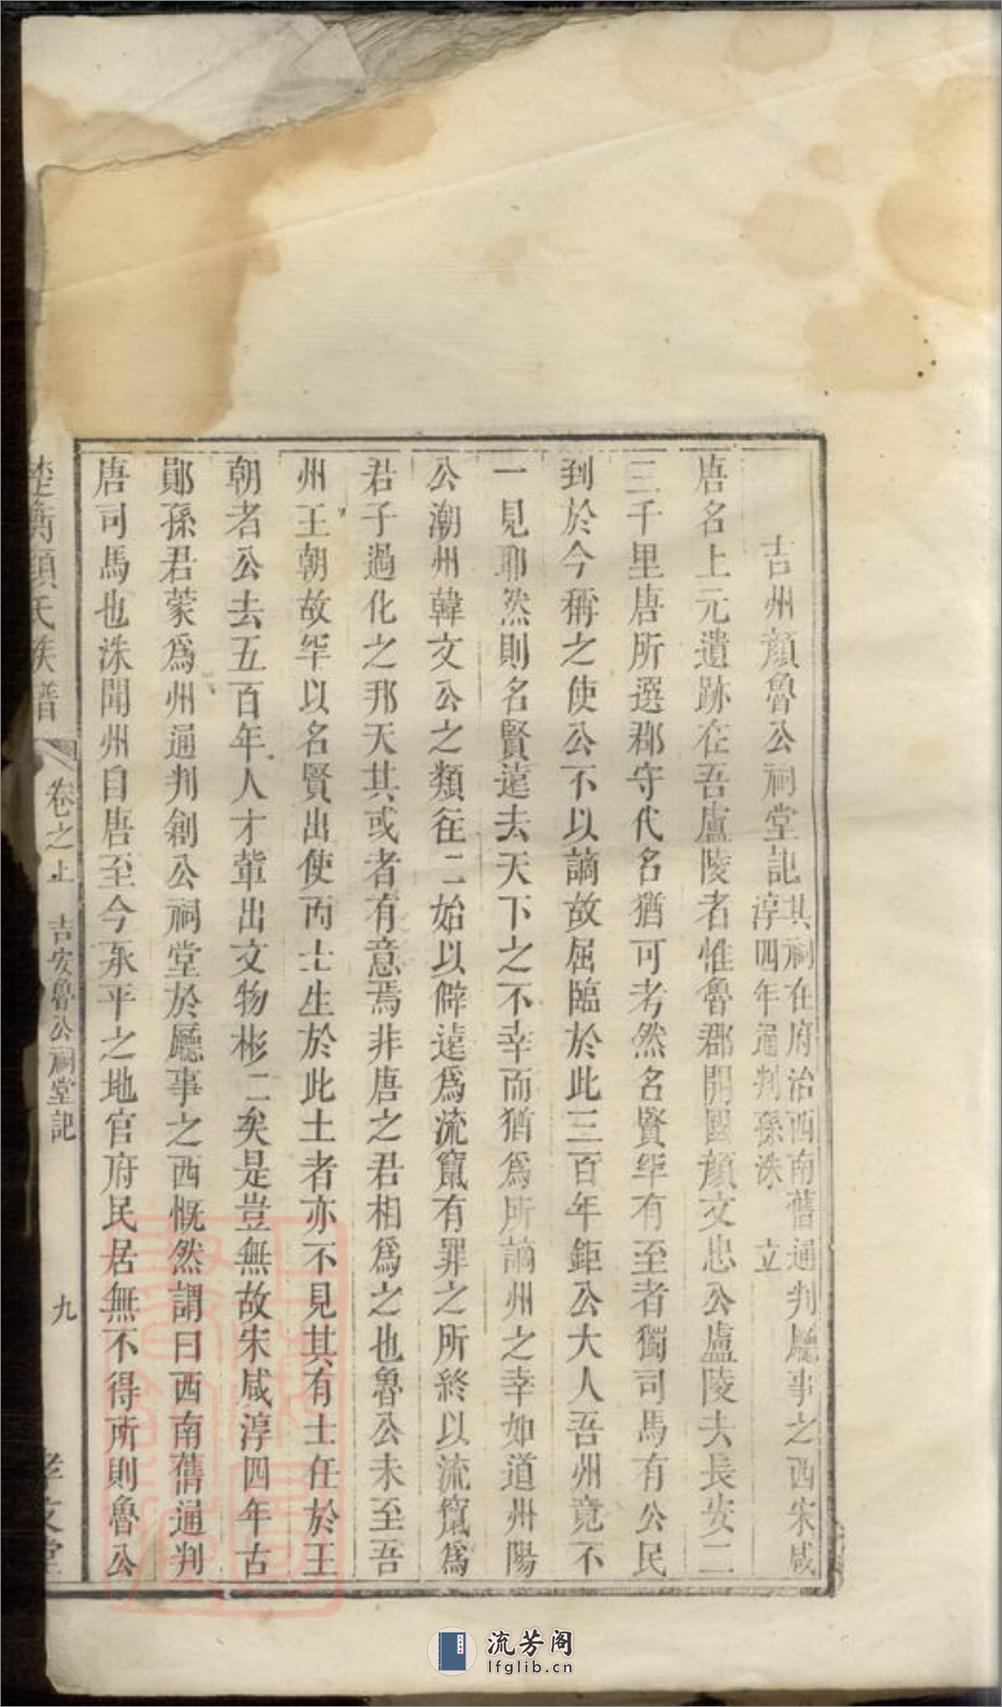 吉州顏魯公祠堂記其祠在府治西南舊通判廳事之西宋咸
淳四年通判孫洙 立
唐名上元遺跡在吾廬陵者惟魯郡開國顏文忠公廬陵去長安二
三千里唐所選郡守代名猶可考然名賢罕有至者獨司馬有公民
到於今稱之使公不以謫故屈臨於此三百年鉅公大人吾州竟不
一見耶然則名賢遠去天下之不幸而猶為所謫州之幸如道州陽
公潮州韓文公之類往二始以僻遠為流竄有罪之所終以流竄為
君子過化之邦天其或者有意焉非唐之君相為之也魯公未至吾
州王朝故罕以名賢出使而士生於此土者亦不見其有士任於王
朝者公去五百年人才輩出文物彬二矣是豈無故宋咸淳四年古
鄖孫君蒙為州通判創公祠堂於廳事之西慨然謂曰西南舊通判
唐司馬也洙聞州自唐至今承平之地官府民居無不得所則魯公
楚衡顏氏族譜 卷之上 吉安魯公祠堂記 九
流芳阁
lfglib.cn